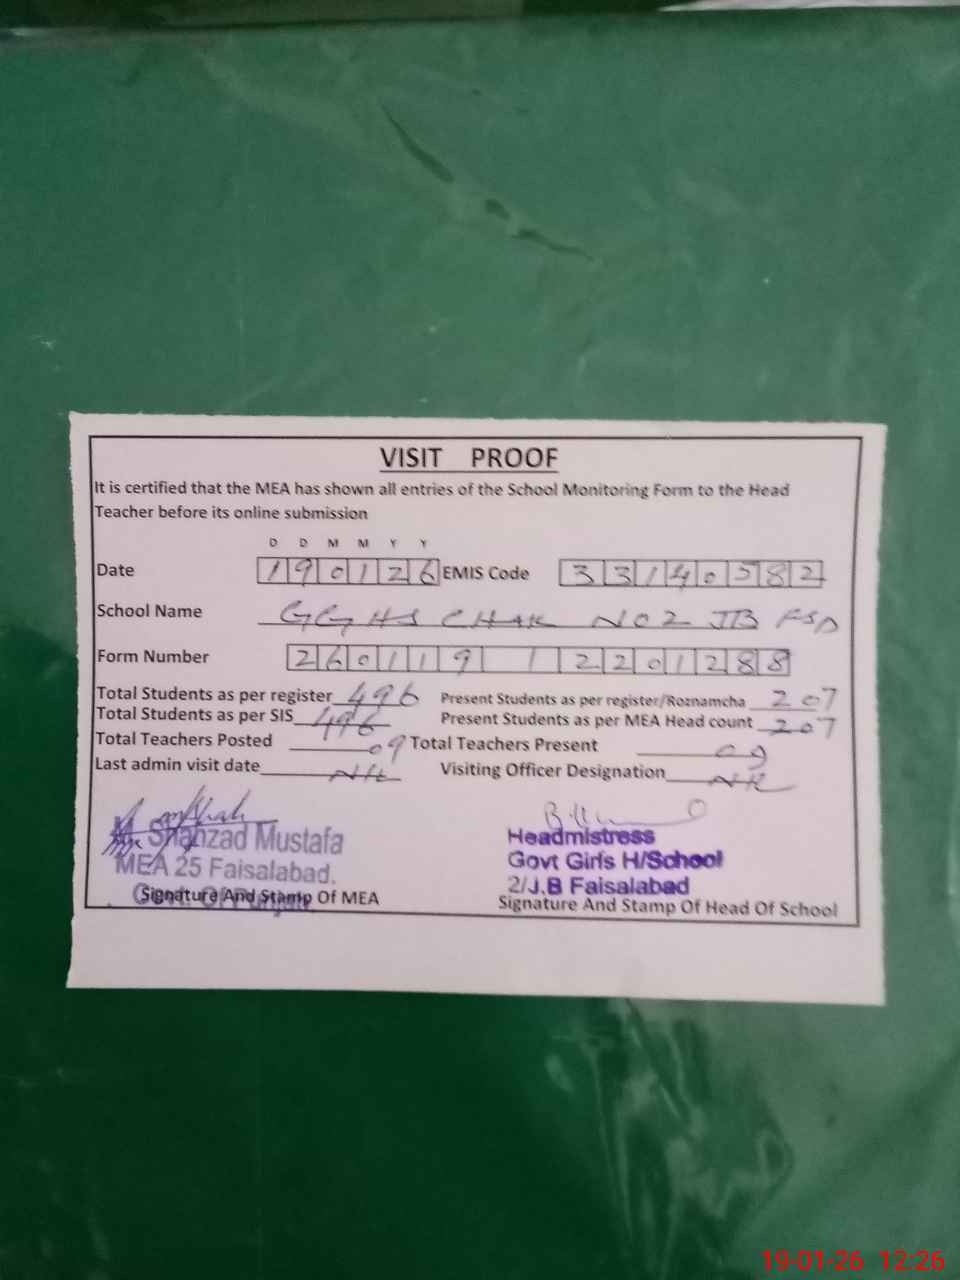 VISIT PROOF
It is certified that the MEA has shown all entries of the School Monitoring Form to the Head
Teacher before its online submission
D D M M Y Y
Date 190126 EMIS Code 33140582
School Name GGHS CHAK NO 2 JB FSD
Form Number 260119 1 2201288
Total Students as per register 496 Present Students as per register/Roznamcha 207
Total Students as per SIS 496 Present Students as per MEA Head count 207
Total Teachers Posted 09 Total Teachers Present 09
Last admin visit date Nil Visiting Officer Designation Nil
Shahzad Mustafa Headmistress
MEA 25 Faisalabad. Govt Girls H/School
2/J.B Faisalabad
Signature And Stamp Of MEA Signature And Stamp Of Head Of School
19-01-26 12:26